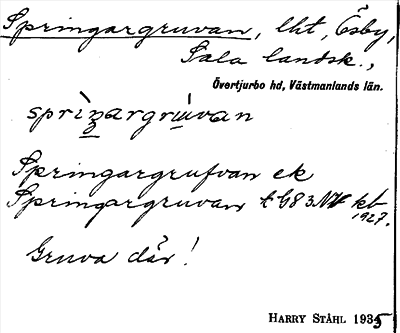 Springargruvan, lht, Ösby,
Sala landsk.,
Övertjurbo hd, Västmanlands län.
sprìŋargrùvan
Springargrufvan ek
Springargruvan t G83NV kb
1927.
Gruva där!
HARRY STÅHL 1935